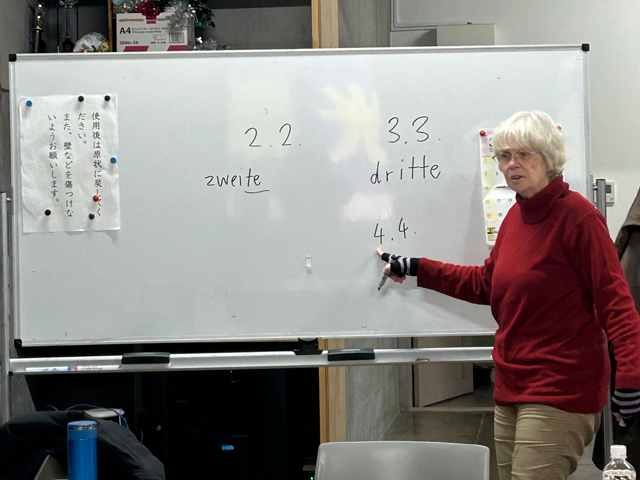 A4
使用後は原状に戻してく
ださい。
また、壁などを傷つけな
いようお願いします。
2.2.
3.3.
zweite
dritte
4.4.